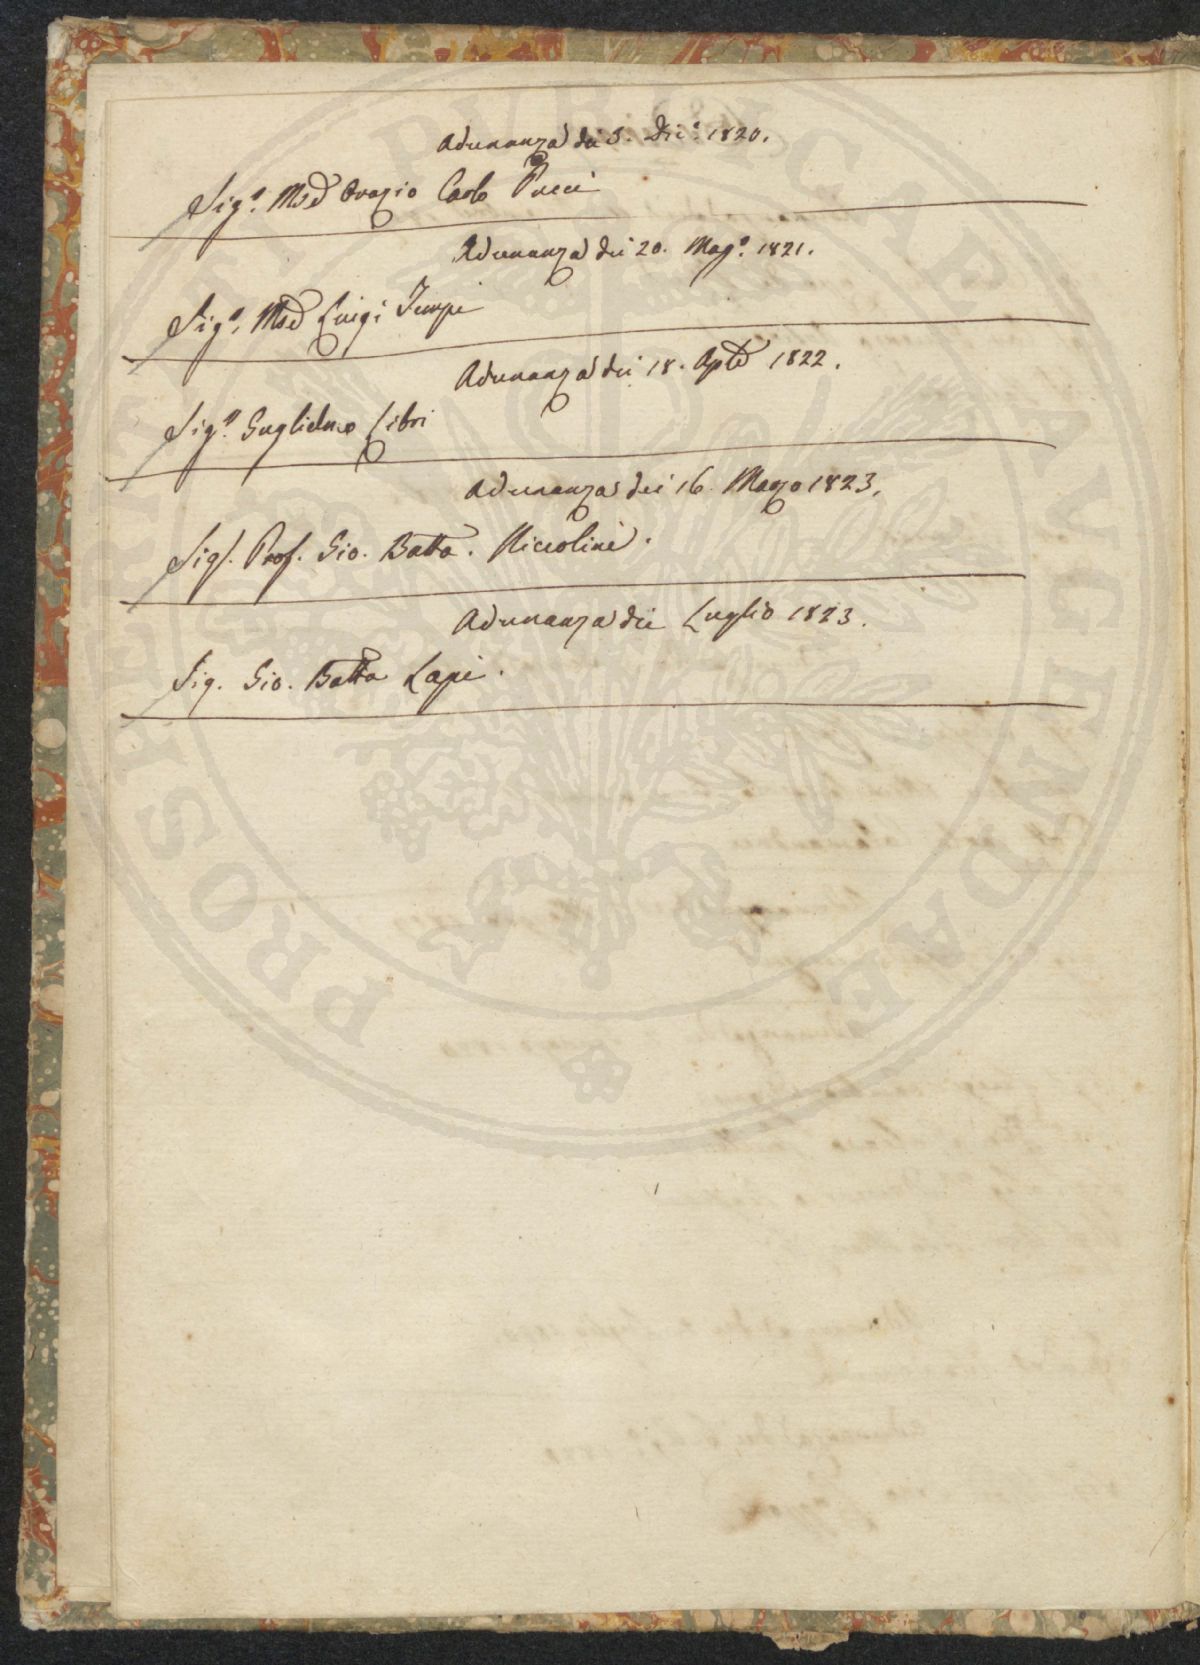 Adunanza dei 3. Dic.e 1820.
Sig.e Mse Orazio Carlo Pucci
Adunanza dei 20. Mag.o 1821.
Sig.e Mse Luigi Tempi
Adunanza dei 18. Aple 1822.
Sig.r Guglielmo Libri
Adunanza dei 16. Marzo 1823.
Sig.r Prof. Gio. Batta. Niccolini.
Adunanza dei Luglio 1823.
Sig. Gio. Batta Lapi.
PROSPERITATI PUBLICAE AUGENDAE